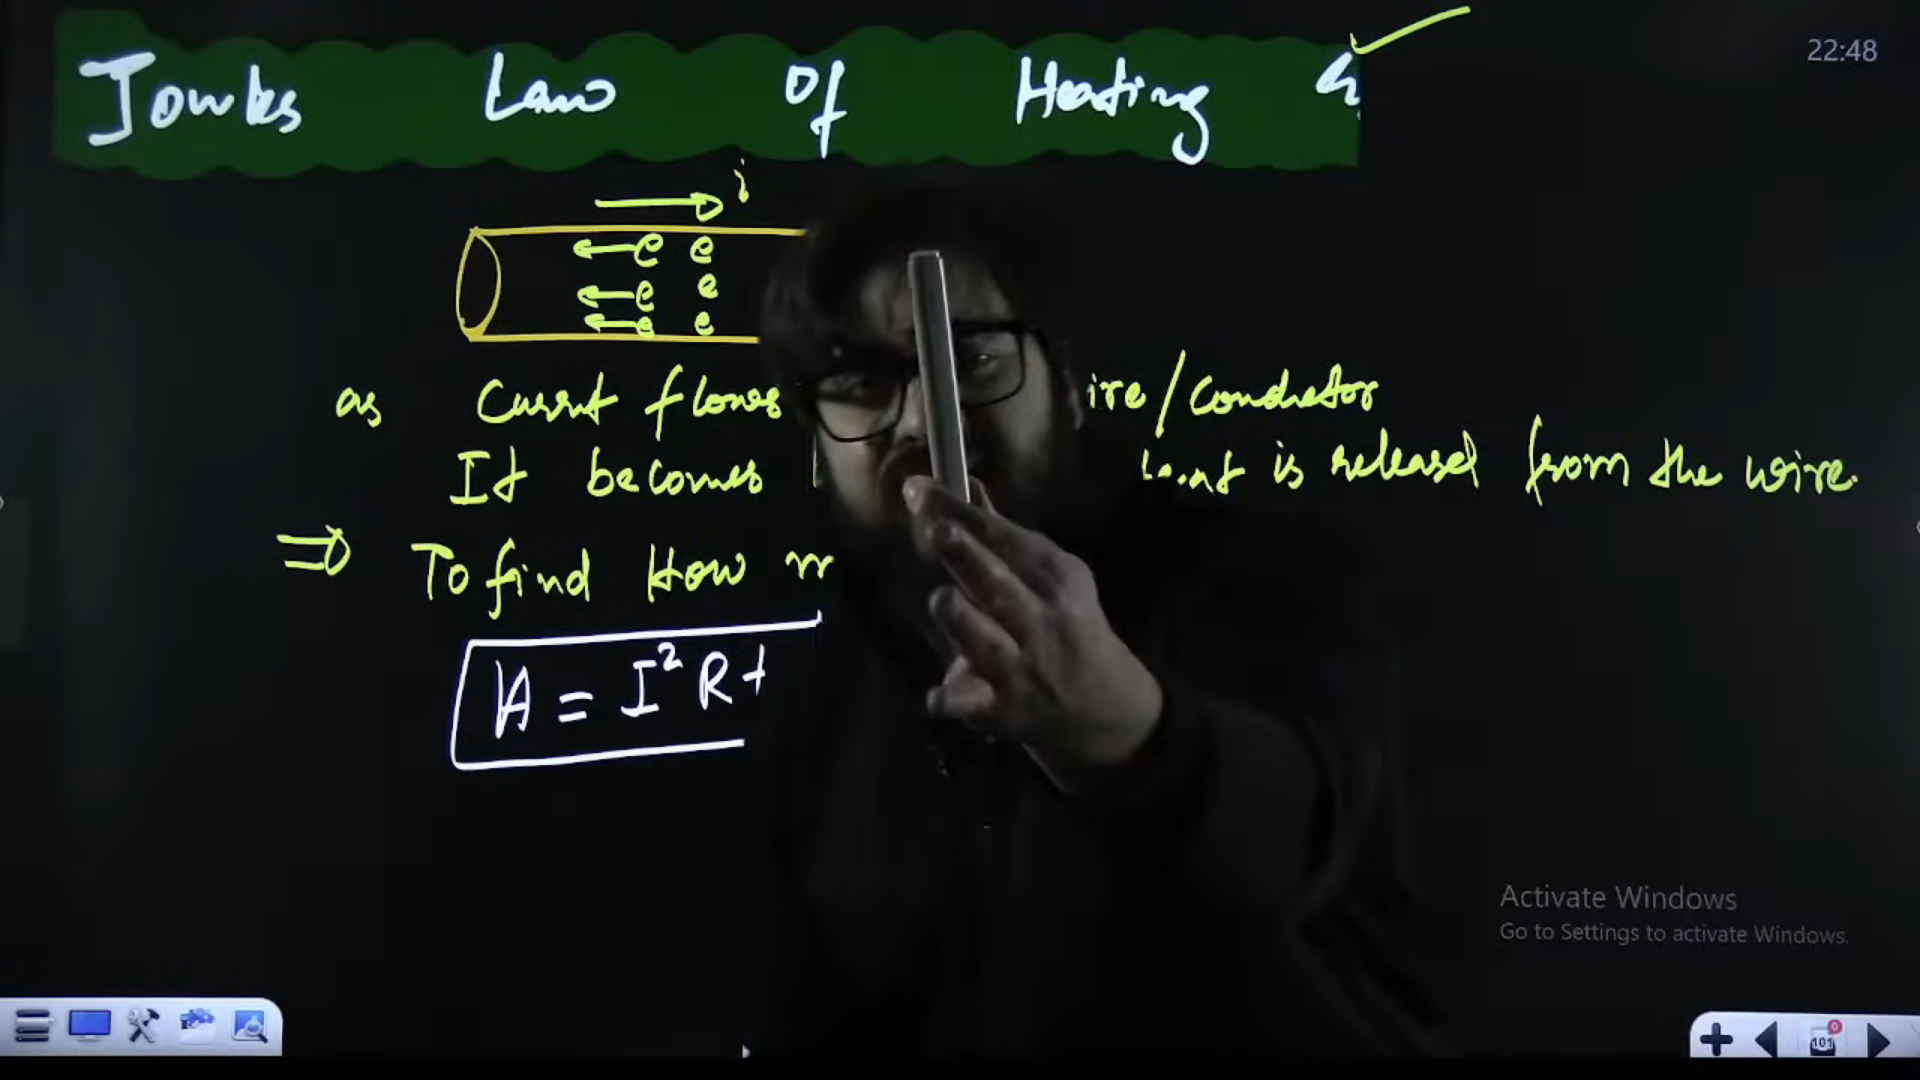 Joules Law Of Heating
22:48
i
e e
e e
e e
as Current flows ire/conductor
It becomes is released from the wire.
⇒ To find How m
H = I² R t
Activate Windows
Go to Settings to activate Windows.
0
101